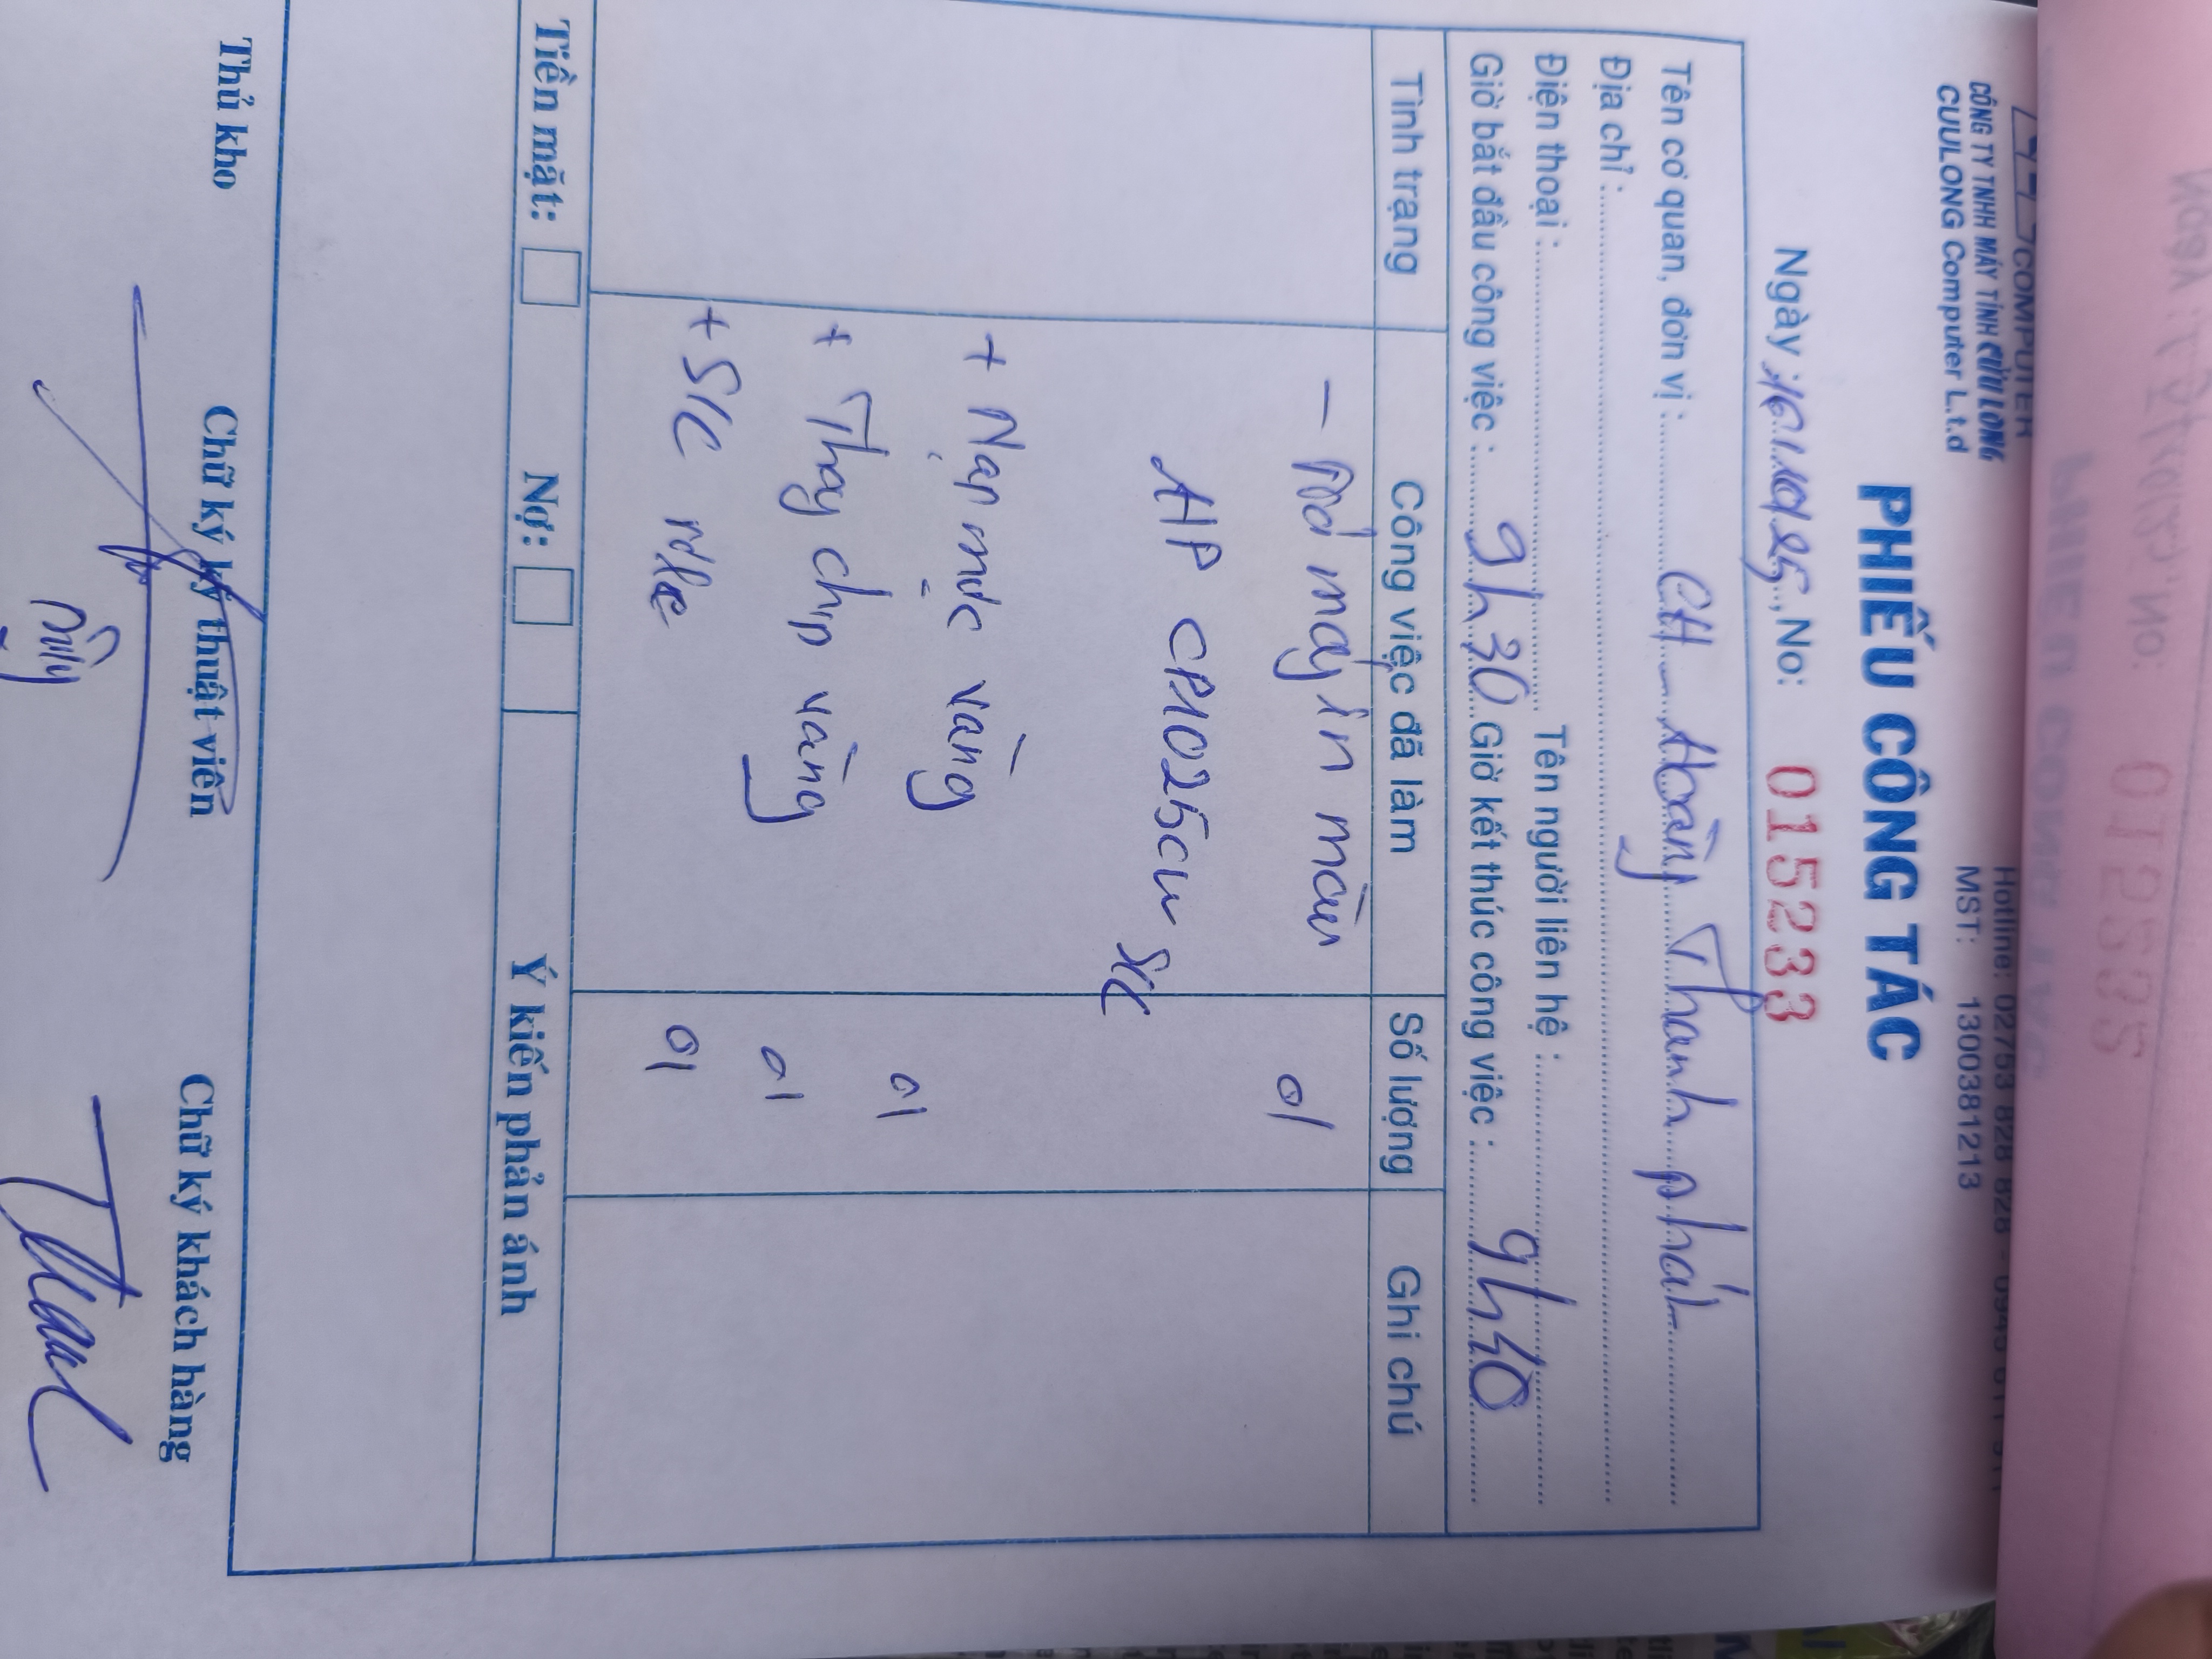 COMPUTER
CÔNG TY TNHH MÁY TÍNH CỬU LONG
CUULONG Computer L.t.d
Hotline: 02753 828 828 - 0945
MST: 1300381213
PHIẾU CÔNG TÁC
Ngày 16/10/25, No: 015233
Tên cơ quan, đơn vị: CH Hoàng Thanh phát
Địa chỉ:
Điện thoại: Tên người liên hệ:
Giờ bắt đầu công việc: 9h30 Giờ kết thúc công việc: 9h40
Tình trạng Công việc đã làm Số lượng Ghi chú
- máy in màu 01
HP CP1025 S/C
+ Nạp mực vàng 01
+ Thay chip vàng 01
+ S/C 01
Tiền mặt: Nợ: Ý kiến phản ánh
Thủ kho Chữ ký kỹ thuật viên Chữ ký khách hàng